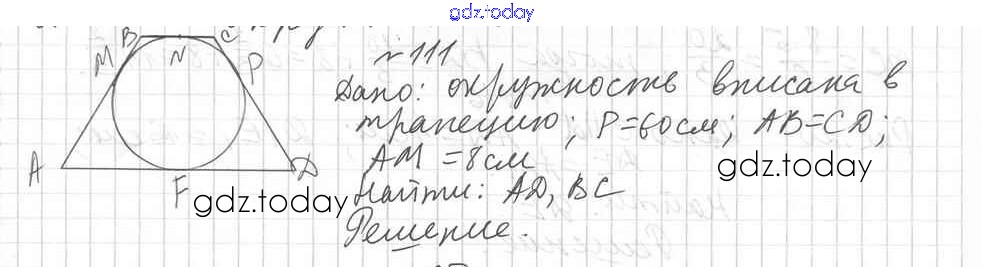 gdz.today
№111
Дано: окружность вписана в
трапецию; P=60см; AB=CD;
AM=8см
Найти: AD, BC
Решение.
B N C
M P
A F D
gdz.today
gdz.today